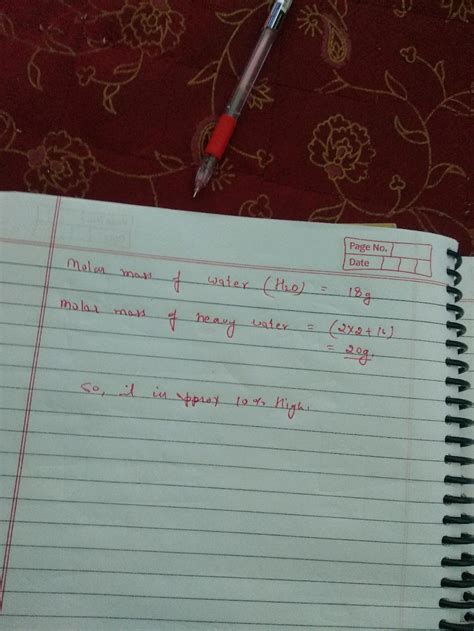 Page No.
Date
Molar mass of water (H2O) = 18g
Molar mass of heavy water = (2x2+16)
= 20g.
So, it is approx 10% high.